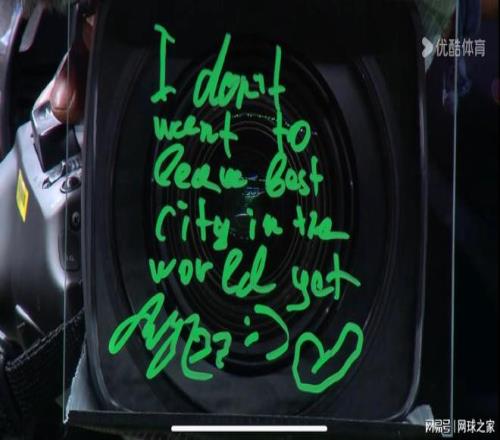 优酷体育
I don't
want to
leave best
city in the
world yet
:)
网易号 | 网球之家